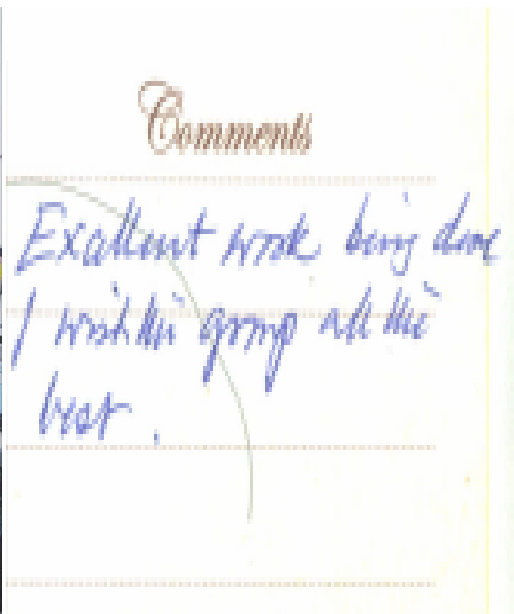 Comments
Exallent work being done
I wish the group all the
best.